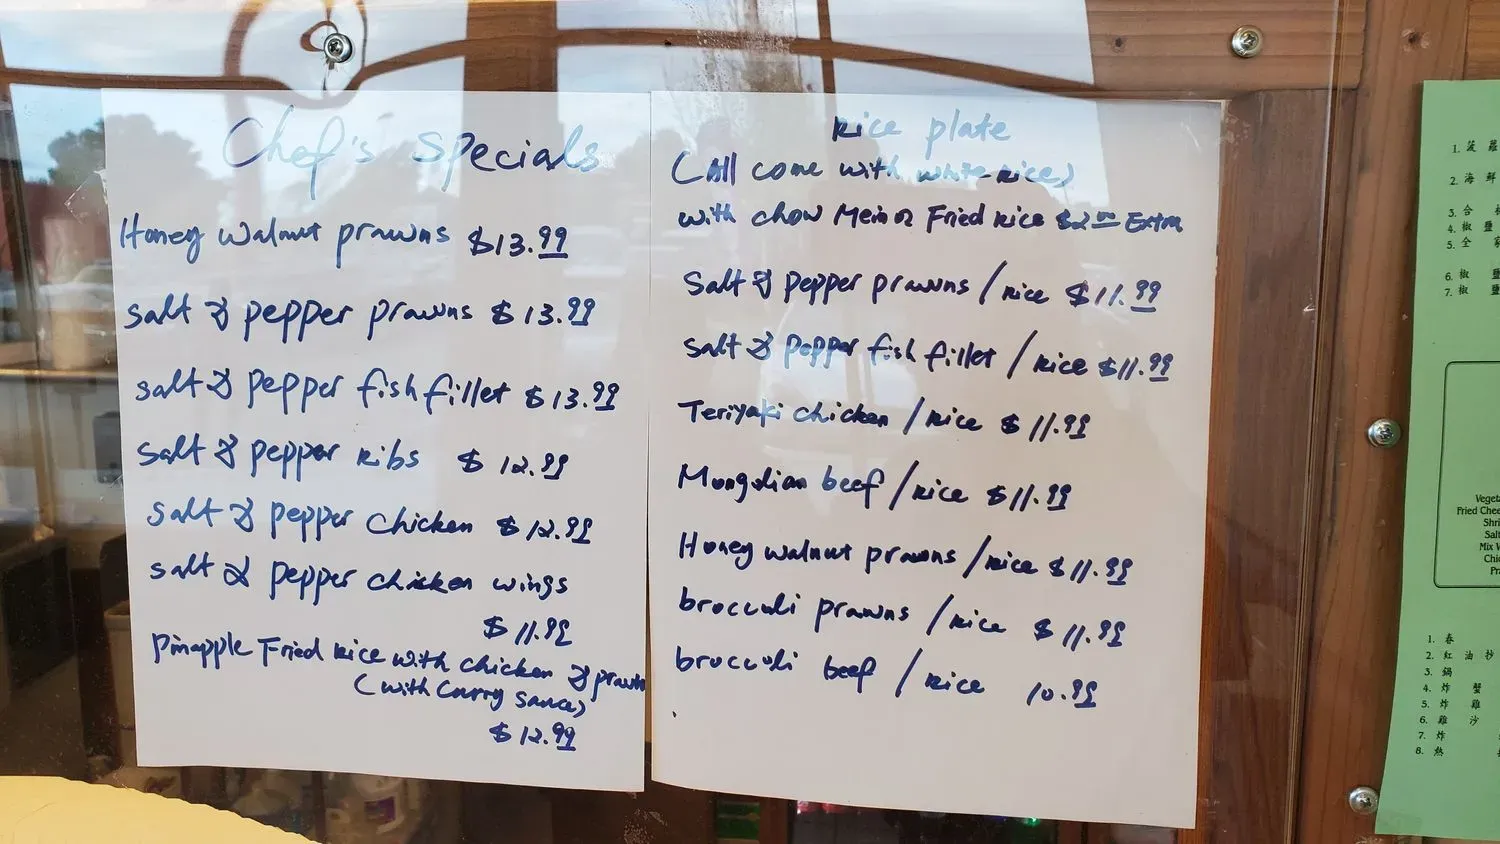 Chef's Specials
Honey walnut prawns $13.99
Salt & pepper prawns $13.99
Salt & pepper fish fillet $13.99
Salt & pepper Ribs $12.99
Salt & pepper chicken $12.99
Salt & pepper chicken wings
$11.99
Pineapple Fried Rice with chicken & prawn
(with Curry sauce)
$12.99
Rice plate
(All come with white Rice)
with chow Mein or Fried Rice $2.00 Extra
Salt & pepper prawns / Rice $11.99
Salt & pepper fish fillet / Rice $11.99
Teriyaki chicken / Rice $11.99
Mongolian beef / Rice $11.99
Honey walnut prawns / Rice $11.99
broccoli prawns / Rice $11.99
broccoli beef / Rice 10.99
1. 菠 蘿
2. 海 鮮
3. 合
4. 椒 鹽
5. 全 家
6. 椒 鹽
7. 椒 鹽
Fried Chee
Shri
Salt
Mix V
Chic
Pra
1. 春
2. 紅 油 抄
3. 鍋
4. 炸 蟹
5. 炸 雞
6. 雞 沙
7. 炸
8. 熱